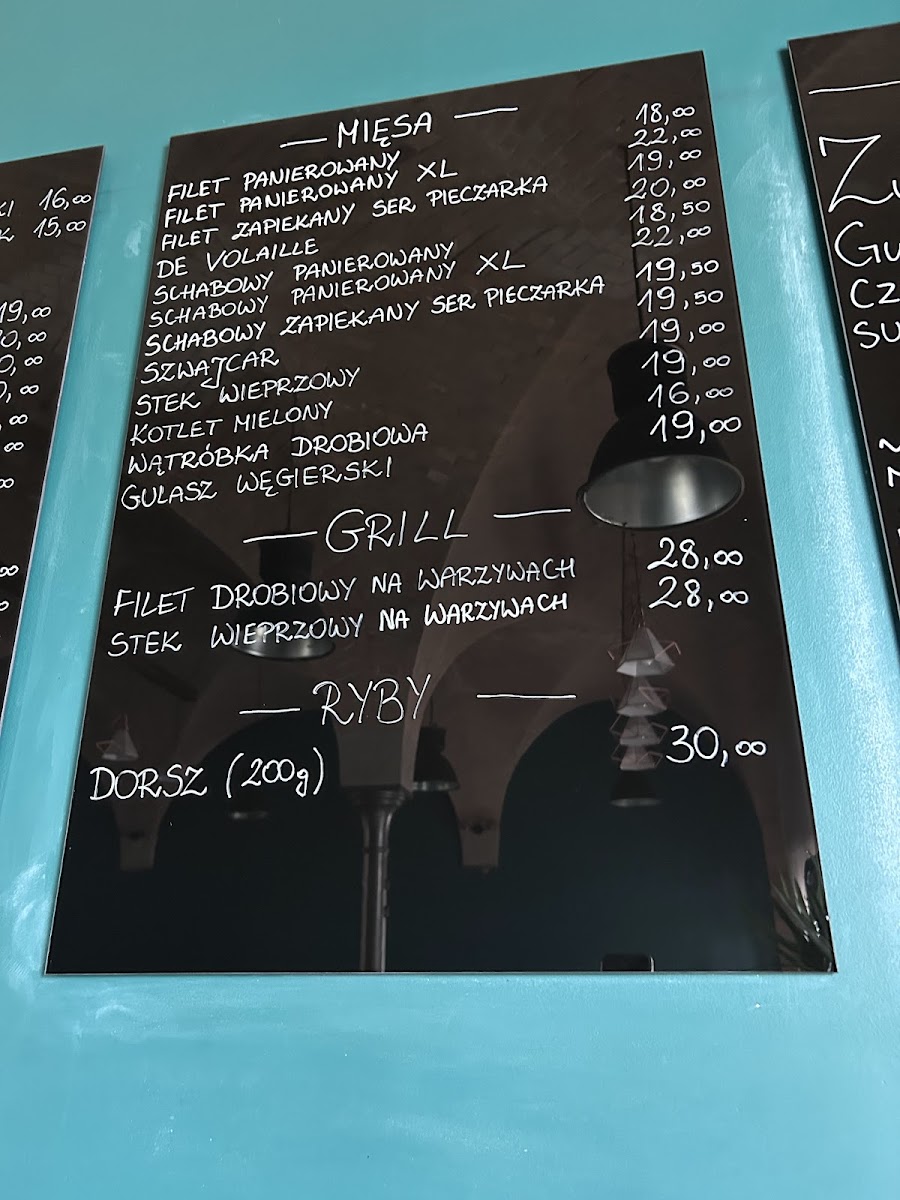 KI 16,00
K 15,00
19,00
0,00
0,00
0,00
,00
00
— MIĘSA —
FILET PANIEROWANY 18,00
FILET PANIEROWANY XL 22,00
FILET ZAPIEKANY SER PIECZARKA 19,00
DE VOLAILLE 20,00
SCHABOWY PANIEROWANY 18,50
SCHABOWY PANIEROWANY XL 22,00
SCHABOWY ZAPIEKANY SER PIECZARKA 19,50
SZWAJCAR 19,50
STEK WIEPRZOWY 19,00
KOTLET MIELONY 19,00
WĄTRÓBKA DROBIOWA 16,00
GULASZ WĘGIERSKI 19,00
— GRILL —
FILET DROBIOWY NA WARZYWACH 28,00
STEK WIEPRZOWY NA WARZYWACH 28,00
— RYBY —
DORSZ (200g) 30,00
Z
GU
CZ
SU